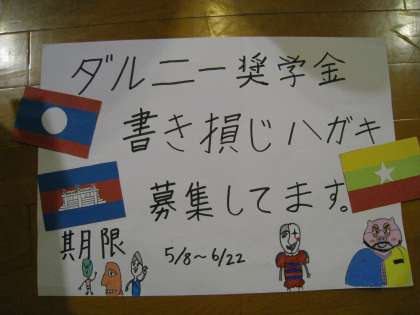 ダルニー奨学金
書き損じハガキ
募集してます。
期限 5/8～6/22